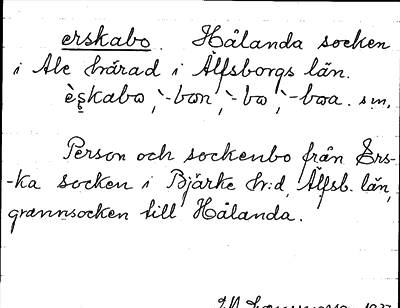 erskabo. Hålanda socken
i Ale härad i Älfsborgs län.
èskabo, -bon, -bo, -boa. sm.
Person och sockenbo från Ers-
-ka socken i Bjärke h:d, Älfsb. län,
grannsocken till Hålanda.